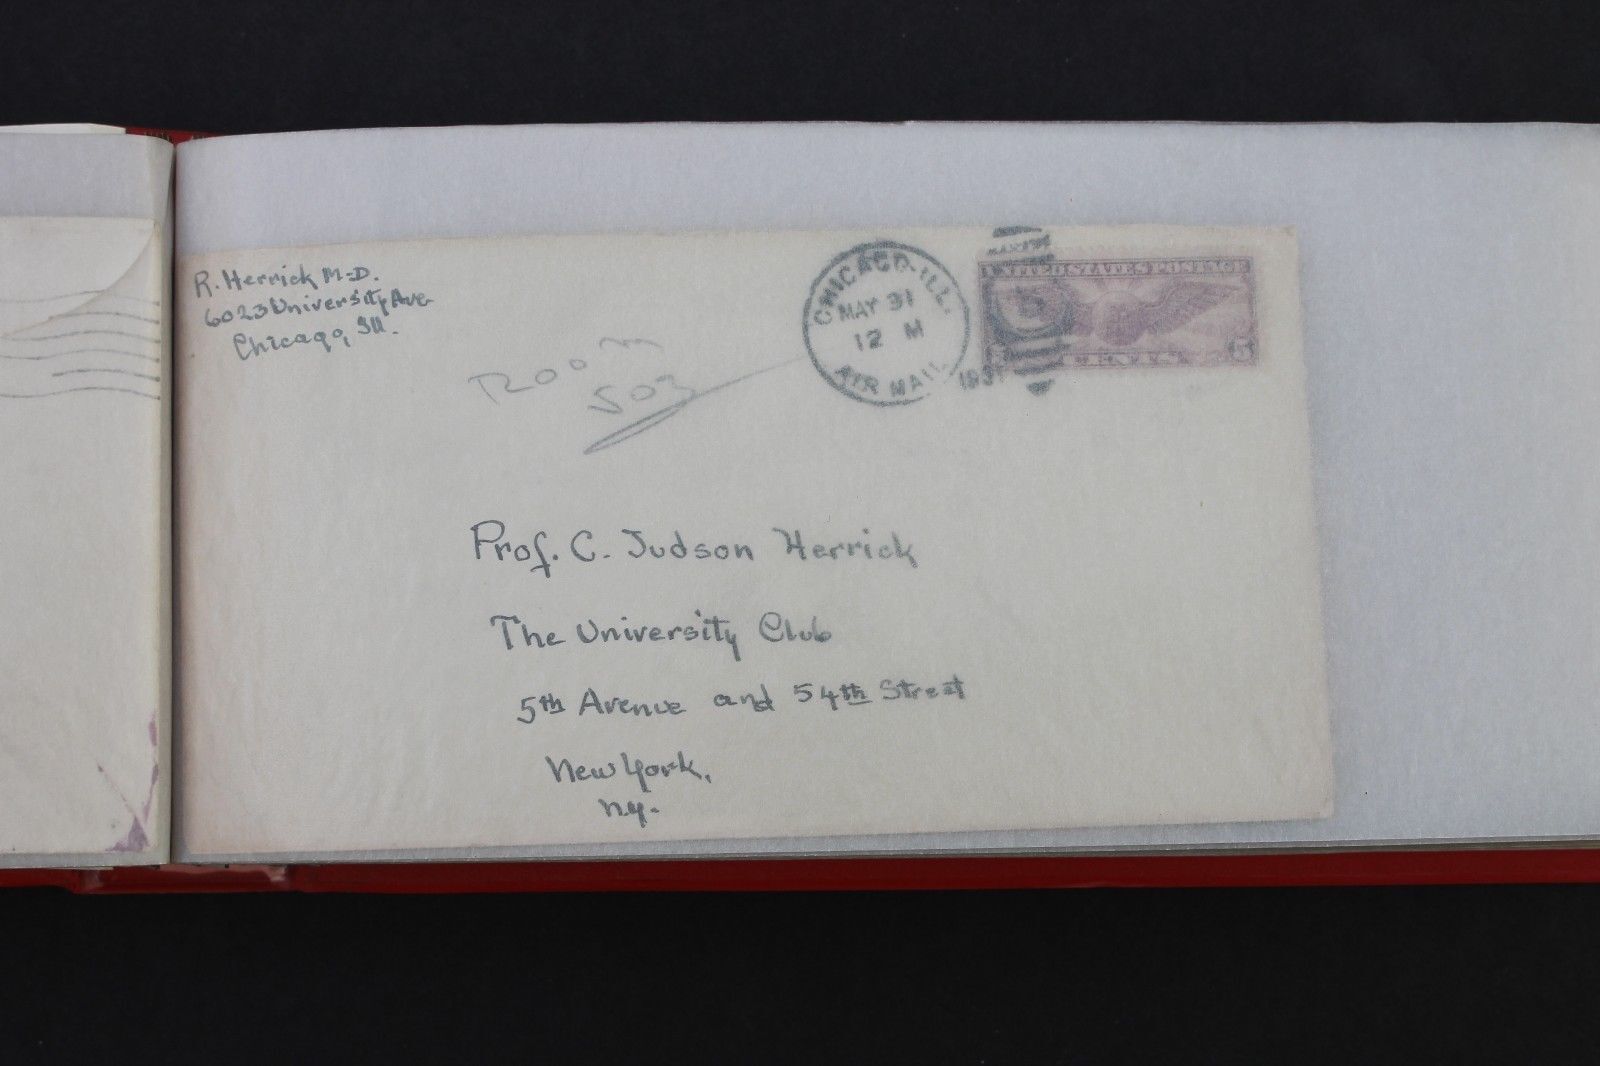 R. Herrick M-D.
6023 University Ave
Chicago, Ill.
Room
503
CHICAGO, ILL.
MAY 31
12 M
AIR MAIL
1931
UNITED STATES POSTAGE
5 CENTS 5
Prof. C. Judson Herrick
The University Club
5th Avenue and 54th Street
New York,
N.Y.